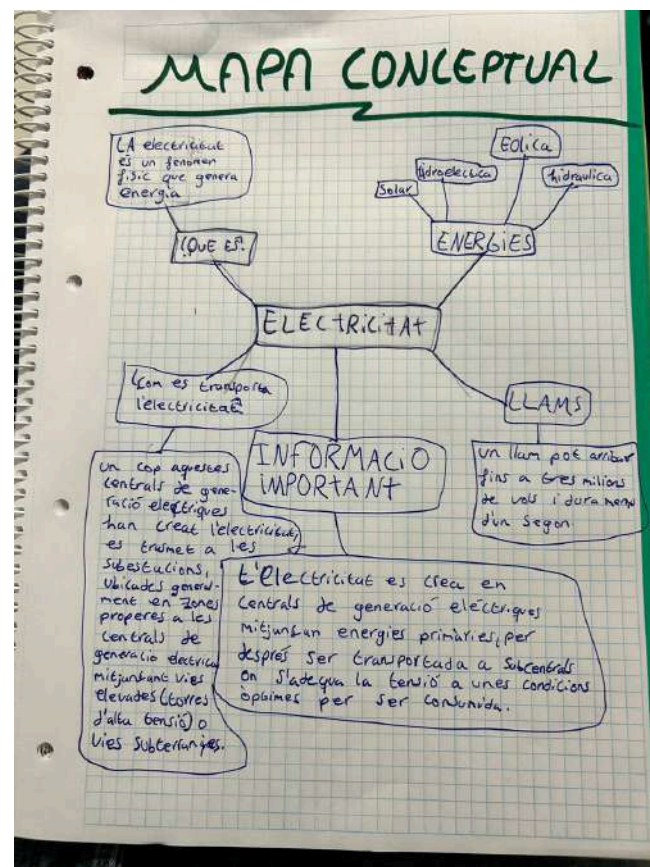 MAPA CONCEPTUAL
LA electricitat
es un fenomen
fisic que genera
energia
¿QUE ES?
Solar
hidroelectica
EOlica
hidraulica
ENERGIES
ELECTRICITAT
¿Com es transporta
l'electricitat?
LLAMS
un llam pot arribar
fins a tres milions
de vols i dura menys
d'un segon.
INFORMACIÓ
IMPORTANT
un cop aquestes
centrals de gene-
ració electriques
han creat l'electricitat,
es trasmet a les
subestacions,
ubicades general-
ment en zones
properes a les
centrals de
generacio electrica
mitjunsant vies
elevades (torres
d'alta tensió) o
vies subterranies.
L'Electricitat es crea en
centrals de generació eléctriques
mitjunsan energies primaries, per
després ser transportada a subcentrals
on s'adequa la tensió a unes condicions
òptimes per ser consumida.